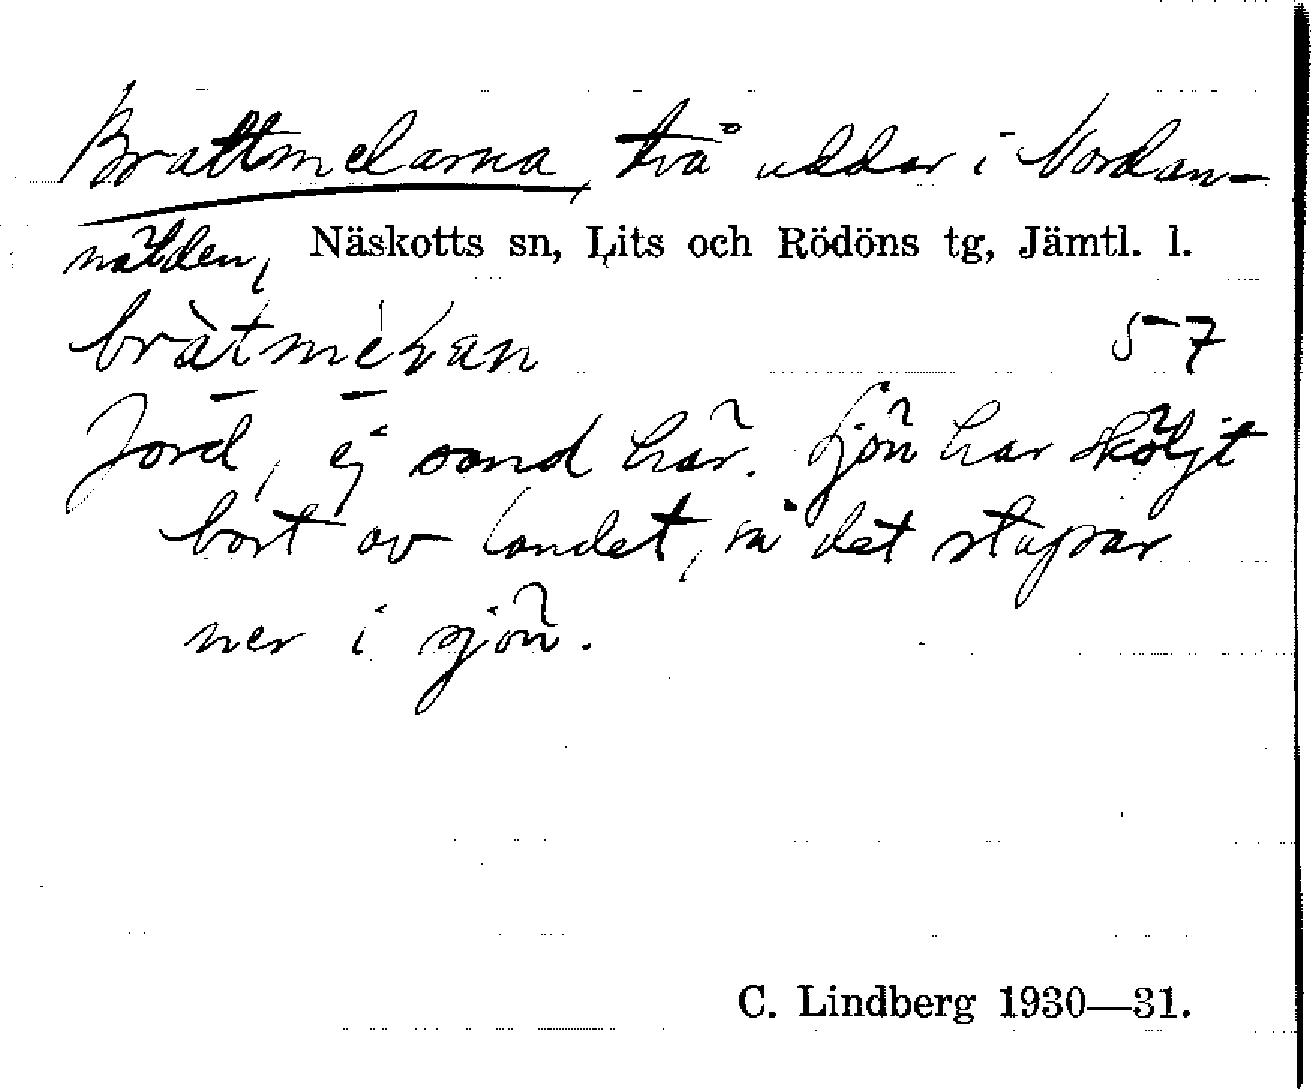 Brattmelarna, två uddar i Nordan-
nälden, Näskotts sn, Lits och Rödöns tg, Jämtl. l.
57
Jord, ej sand här. Sjön har sköljt
bort av landet, så det stupar
ner i sjön.
C. Lindberg 1930—31.